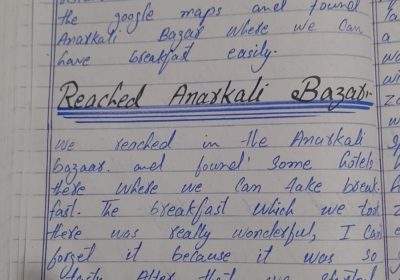 the google maps and found
Anarkali Bazar where we can
have breakfast easily.
Reached Anarkali Bazar:-
we reached in the Anarkali
bazaar. and found some hotels
there where we can take break-
fast. The breakfast which we took
there was really wonderful, I can
forget it because it was so
After that we